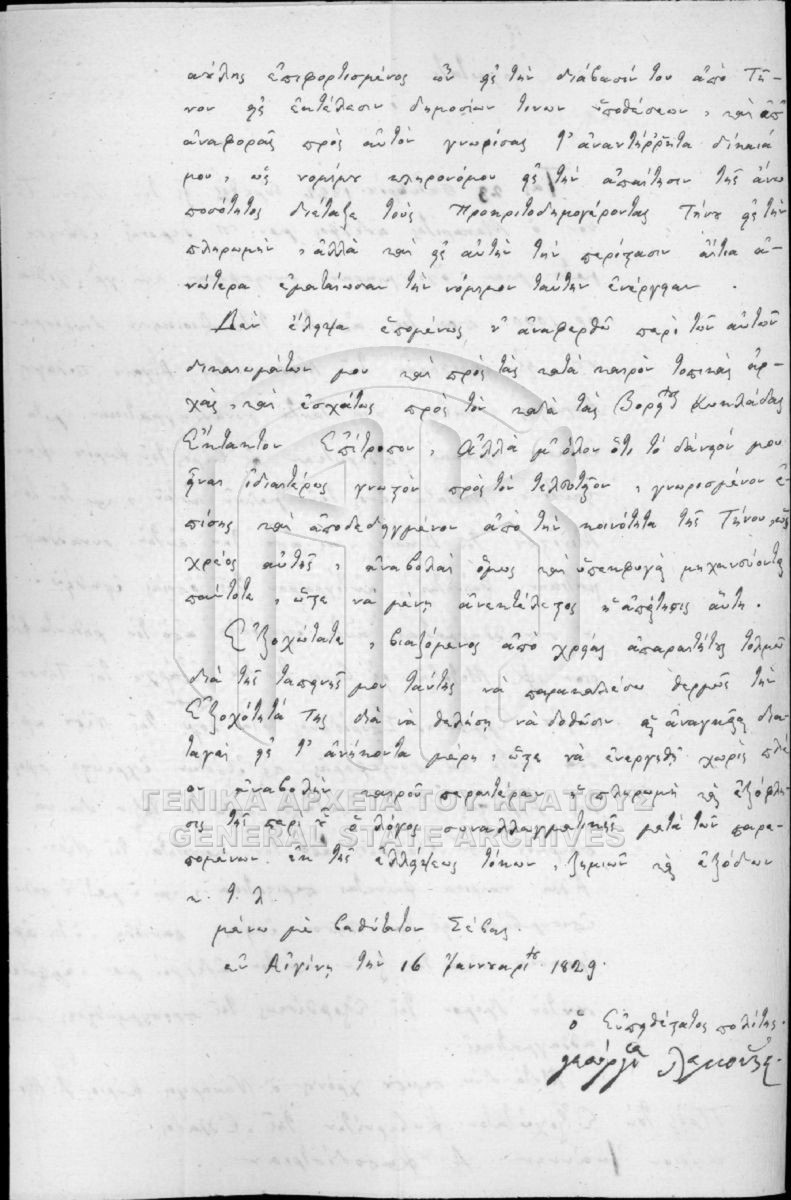 αύλης ἐπιφορτισμένος ὢν εἰς τὴν διάβασίν του ἀπὸ Τῆ-
νον εἰς ἐκτέλεσιν δημοσίων τινων ὑποθέσεων, καὶ ἀπ'
ἀναφορᾶς πρὸς αὐτὸν γνωρίσας τ' ἀναντίῤῥητα δίκαιά
μου, ὡς νομίμου κληρονόμου εἰς τὴν ἀπαίτησιν τῆς ἄνω
ποσότητος διέταξε τοὺς Προκριτοδημογέροντας Τήνου εἰς τὴν
πληρωμὴν, ἀλλὰ καὶ εἰς αὐτὴν τὴν περίστασιν αἴτια ἀ-
νώτερα ἐματαίωσαν τὴν νόμιμον ταύτην ἐνέργειαν.
Δὲν ἔλειψα ἑπομένως ν' ἀναφερθῶ περὶ τῶν αὐτῶν
δικαιωμάτων μου καὶ πρὸς τὰς κατὰ καιρὸν τοπικὰς ἀρ-
χὰς, καὶ ἐσχάτως πρὸς τὸν κατὰ τὰς Βορείους Κυκλάδας
Ἔκτακτον Ἐπίτροπον, Ἀλλὰ μ' ὅλον ὅτι τὸ δάνειόν μου
ἦναι ἰδιαιτέρως γνωστὸν πρὸς τὸν τελευταῖον, γνωρισμένον ἐ-
πίσης καὶ ἀποδεδειγμένον ἀπὸ τὴν κοινότητα τῆς Τήνου, ὡς
χρέος αὐτῆς, ἀναβολαὶ ὅμως καὶ ὑπεκφυγαὶ μηχανεύονται
πάντοτε, ὥστε νὰ μένῃ ἀνεκτέλεστος ἡ ἀπαίτησις αὕτη.
Ἐξοχώτατε, βιαζόμενος ἀπὸ χρείας ἀπαραιτήτους τολμῶ
διὰ τῆς ταπεινῆς μου ταύτης νὰ παρακαλέσω θερμῶς τὴν
Ἐξοχότητά Της διὰ νὰ θελήσῃ νὰ δοθῶσιν αἱ ἀναγκαῖαι δια-
ταγαὶ εἰς τ' ἀνήκοντα μέρη, ὥστε νὰ ἐνεργηθῇ χωρὶς πλέ
ον ἀναβολὴν καιροῦ περαιτέρω ἡ πληρωμὴ καὶ ἐξόφλη-
σις τῆς περὶ ἧς ὁ λόγος συναλλαγματικῆς μετὰ τῶν παρε-
πομένων ἐκ τῆς ἐλλείψεως τόκων, ζημιῶν καὶ ἐξόδων
κ. τ. λ.
μένω μὲ βαθύτατον Σέβας.
ἐν Αἰγίνῃ τὴν 16 Ἰαννουαρίου 1829.
ὁ Εὐπειθέστατος πολίτης.